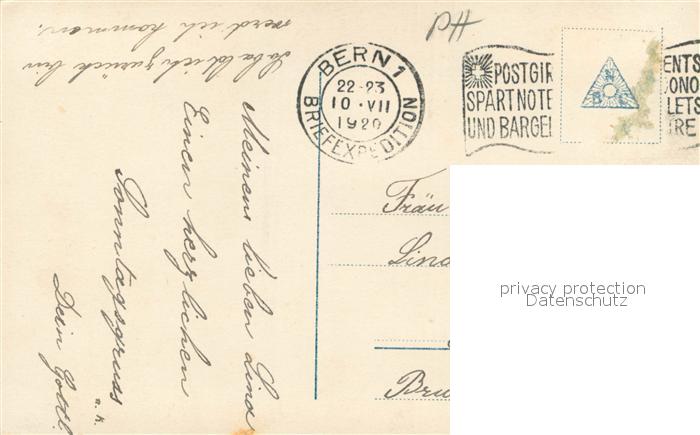 PH
BERN 1
22-23
10·VII
1920
BRIEFEXPEDITION
POSTGIR
SPART NOTE
UND BARGEL
ENTS
ONO
LETS
TRE
N
B K
Sobald ich zurück bin
werd ich kommen.
Meinem lieben Lina
Einen herzlichen
Sonntagsgruss
u. K.
Dein Gottl.
Fräu
Lina
Bru
privacy protection
Datenschutz